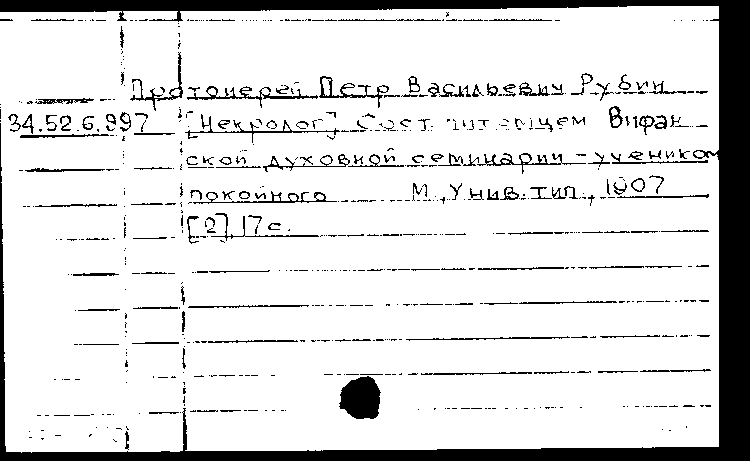 Протоиерей Петр Васильевич Рубин
34.52.6.997 [Некролог] Сост. питомцем Вифан
ской духовной семинарии - учеником
покойного М., Унив. тип., 1907
[2], 17 с.